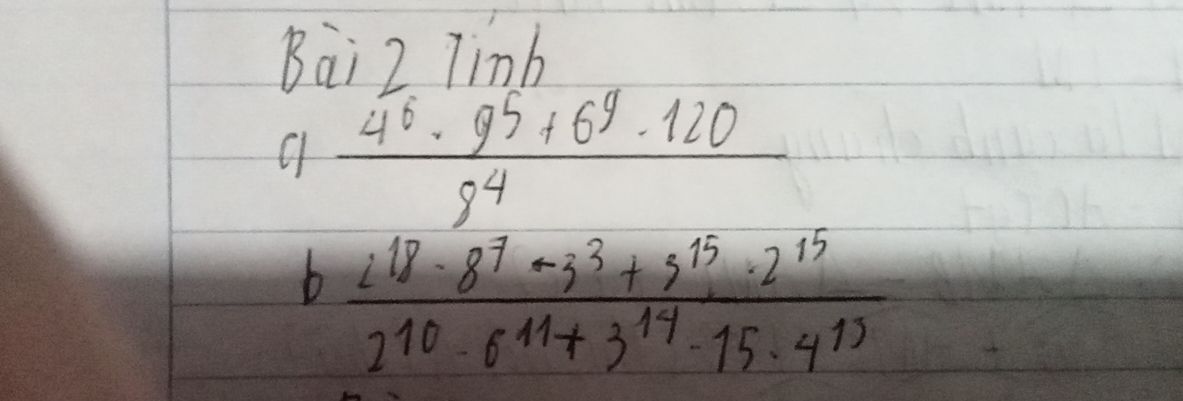 Bài 2 Tính
a 4⁶ . 9⁵ + 6⁹ . 120
8⁴
b 2¹⁸ . 8⁷ . 3³ + 3¹⁵ . 2¹⁵
2¹⁰ . 6¹¹ + 3¹⁴ . 15 . 4¹³